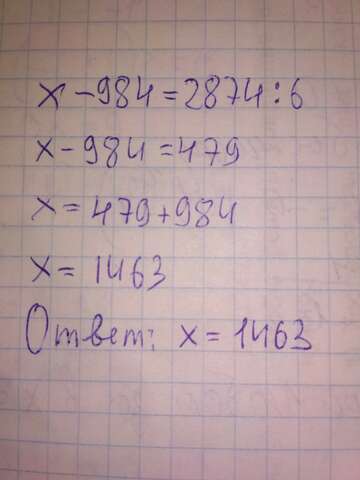 x - 984 = 2874 : 6
x - 984 = 479
x = 479 + 984
x = 1463
Ответ: x = 1463